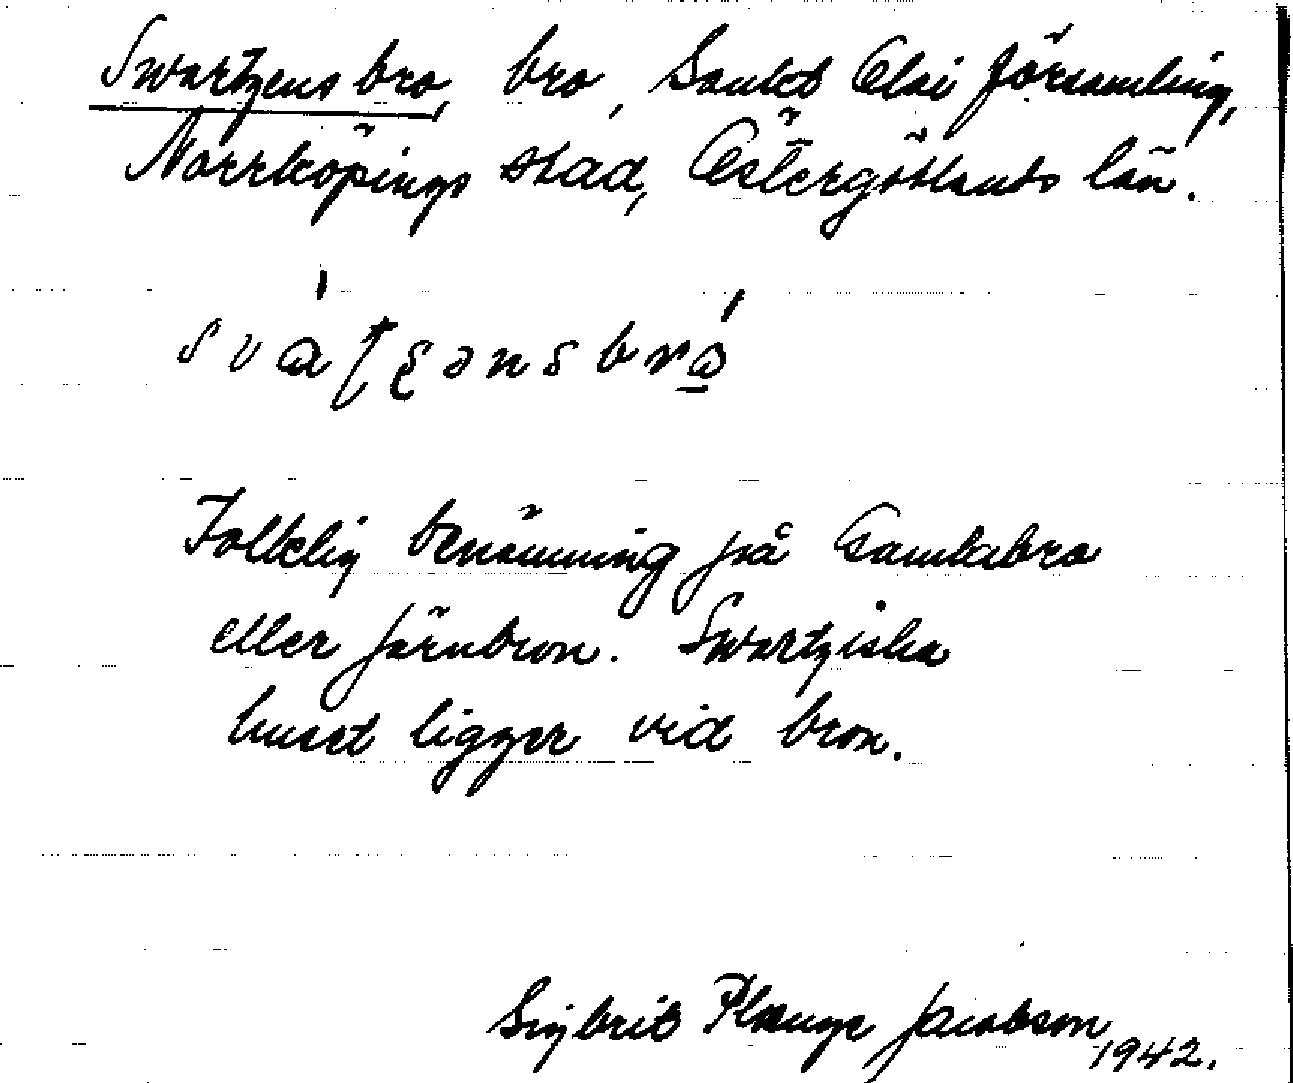 Swartzens bro, bro, Sankt Olai församling,
Norrköpings stad, Östergötlands län.
Folklig benämning på Gamlebro
eller Järnbron. Swartziska
huset ligger vid bron.
Sigbrit Plænge Jacobson
1942.